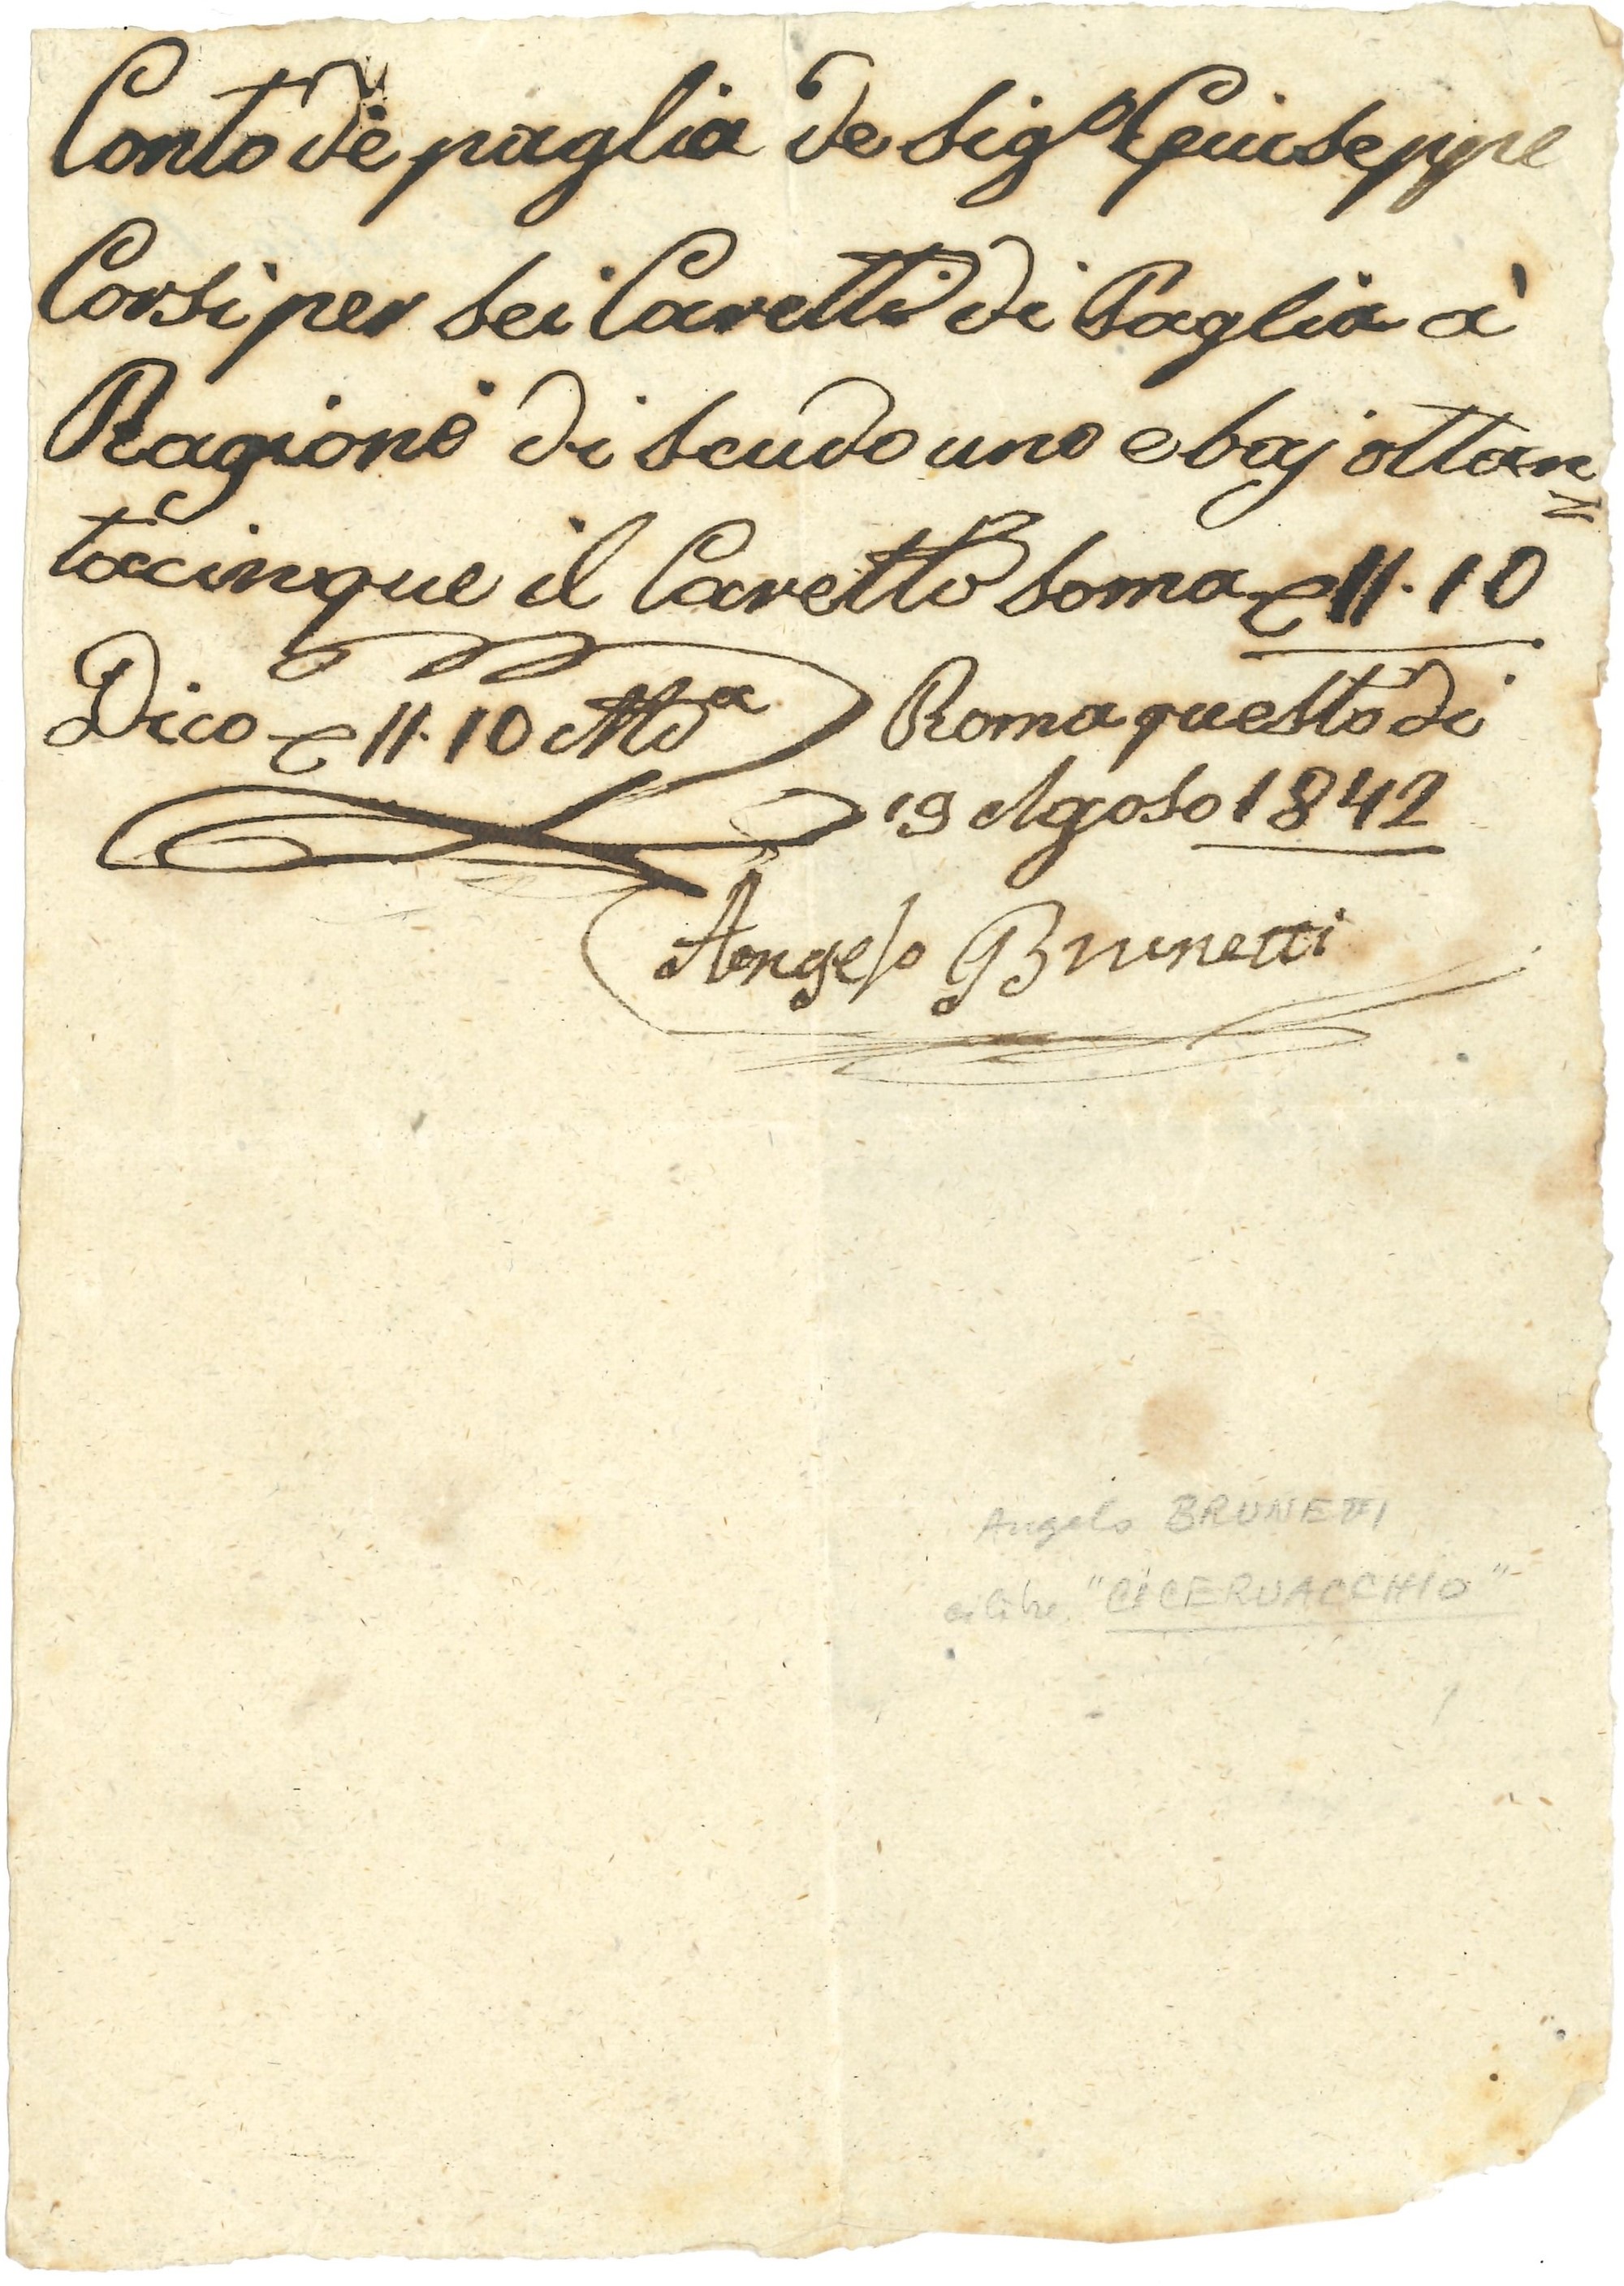 Conto de paglia de Sig.r Guiseppe
Corsi per sei Caretti di Paglia à
Ragione di scudo uno e baj ottan=
tacinque il Caretto soma 11.10
Dico 11.10 Md.a Roma questo di
19 Agoso 1842
Angelo Brunetti
Angelo BRUNETTI
"CICERUACCHIO"